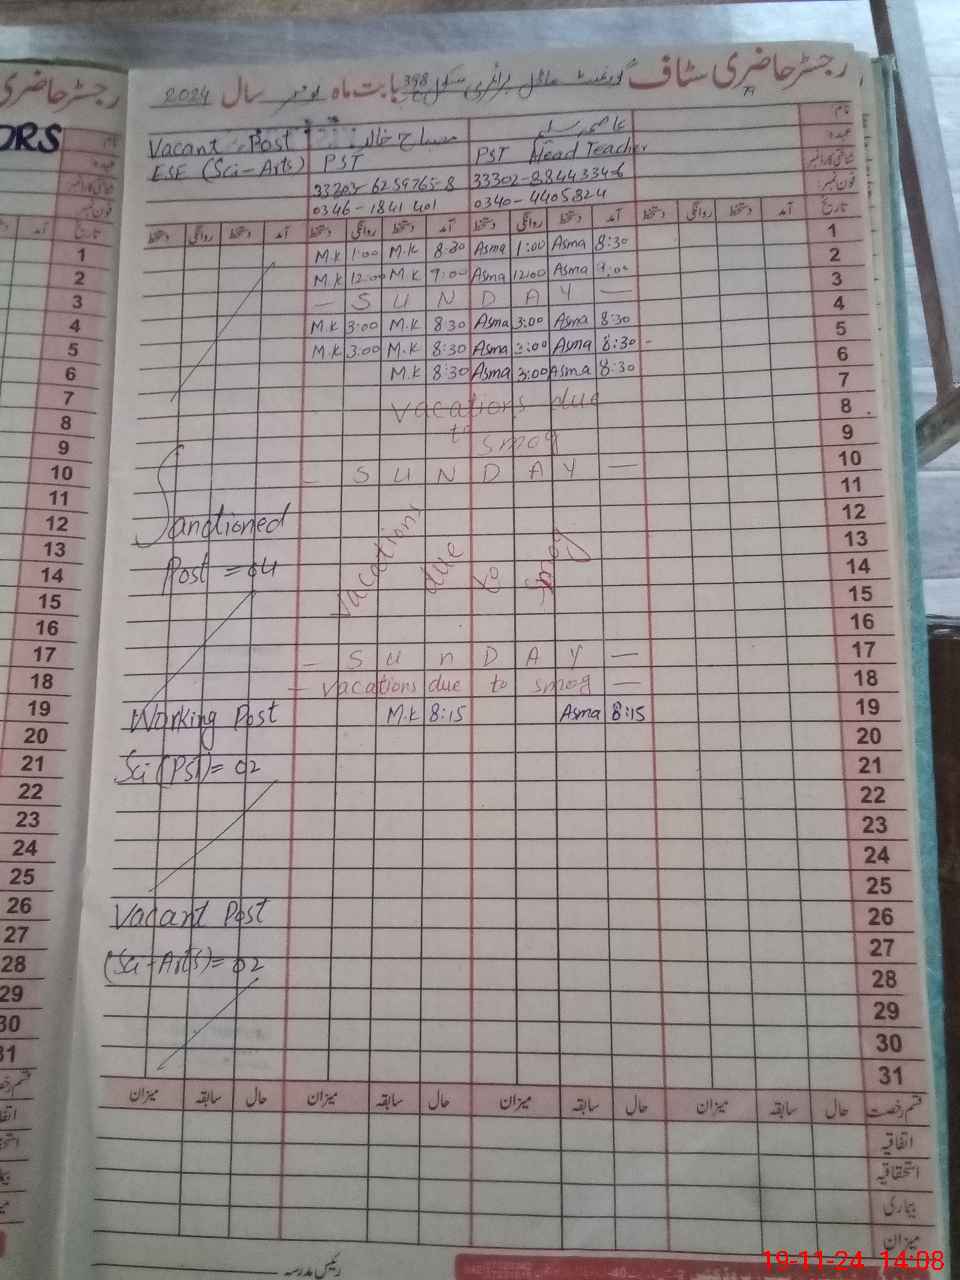 رجسٹر حاضری سٹاف گورنمنٹ ماڈل پرائمری سکول 398 بابت ماہ نومبر سال 2024
رجسٹر حاضری
ORS
نام
عہدہ
شناختی کارڈ نمبر
فون نمبر
عاصمہ سلیم
مصباح خالد
Vacant Post
PST Head Teacher
PST
ESE (Sci-Arts)
33302-8844334-6
33203-6259765-8
0340-4405824
0346-1841401
تاریخ آمد دستخط روانگی دستخط آمد دستخط روانگی دستخط آمد دستخط روانگی دستخط آمد دستخط روانگی دستخط
1 M.K 1:00 M.K 8:30 Asma 1:00 Asma 8:30
2 M.K 12:00 M.K 9:00 Asma 12:00 Asma 9:00
3 — S U N D A Y —
4 M.K 3:00 M.K 8:30 Asma 3:00 Asma 8:30
5 M.K 3:00 M.K 8:30 Asma 3:00 Asma 8:30
6 M.K 8:30 Asma 3:00 Asma 8:30
7 vacations due
8 to smog
9
10 — S U N D A Y —
11
12 Sanctioned
13 vacations due to smog
14 Post = 04
15
16
17 — S U n D A Y —
18 — vacations due to smog —
19 Working Post M.K 8:15 Asma 8:15
20
21 Sci (PST) = 02
22
23
24
25
26 Vacant Post
27
28 (Sci-Arts) = 02
29
30
31
قسم رخصت حال سابقہ میزان حال سابقہ میزان حال سابقہ میزان حال سابقہ میزان
اتفاقیہ
استحقاقیہ
بیماری
میزان
رئیس مدرسہ
19-11-24 14:08